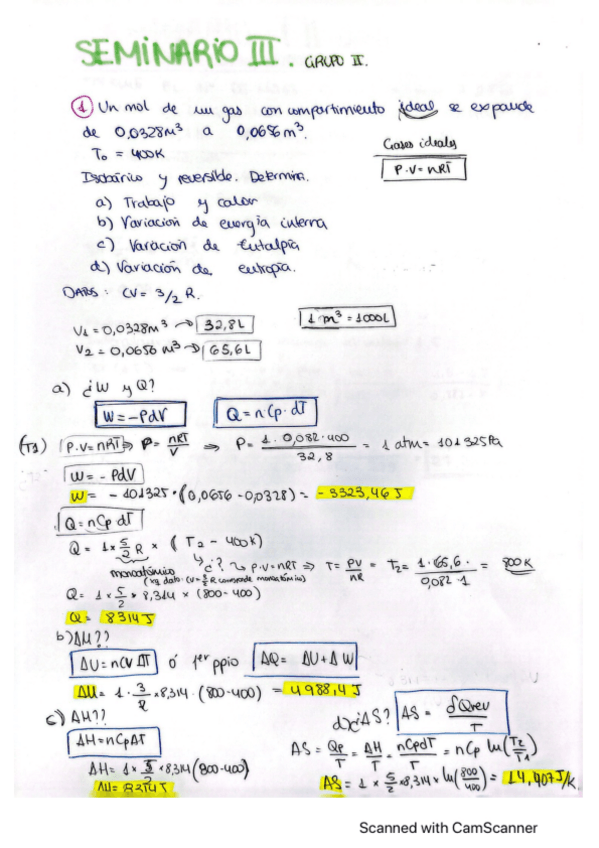 SEMINARIO III. GRUPO II.
① Un mol de un gas con compartimiento ideal se expande
de 0,0328m³ a 0,0656m³.
T₀ = 400K
Gases ideales
P·V=nRT
Isobárico y reversible. Determina.
a) Trabajo y calor
b) Variacion de energía interna
c) Varacion de Eutalpía
d) Variación de eutropía.
DATOS: CV = 3/2 R.
V₁ = 0,0328m³ → 32,8L
1 m³ = 1000L
V₂ = 0,0656 m³ → 65,6L
a) ¿W y Q?
W=-PdV
Q=n·Cp·dT
(T1) P.V=nRT ⇒ P= nRT/V ⇒ P= 1·0,082·400/32,8 = 1 atm = 101325Pa
W=-PdV
W= -101325·(0,0656-0,0328) = -3323,46J
Q=nCp dT
Q= 1×5/2 R × (T₂ - 400K)
monoatómico
¿? → P·V=nRT ⇒ T= PV/nR = T₂= 1·65,6·/0,082·1 = 800K
Q= 1×5/2 × 8,314 × (800-400)
Q= 8314J
b) ΔU??
ΔU=nCVΔT ó 1er ppio ΔQ= ΔU+ΔW
ΔU= 1·3/2 ×8,314·(800-400) = 4988,4J
c) ΔH??
ΔH=nCpΔT
ΔH= 1×5/2 ×8,314(800-400)
ΔH= 8314J
d) ¿ΔS? ΔS= δQrev/T
ΔS= Qp/T = ΔH/T = nCpdT/T = nCp ln(T₂/T₁)
ΔS= 1 × 5/2 ×8,314× ln(800/400) = 14,407J/K
Scanned with CamScanner